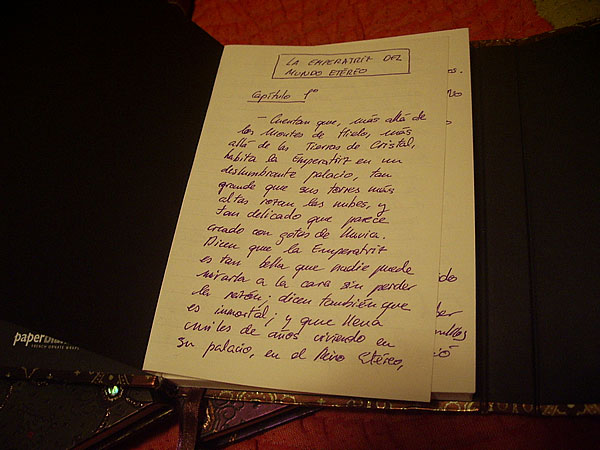 LA EMPERATRIZ DEL
MUNDO ETÉREO
Capítulo 1º
- Cuentan que, más allá de
los Montes de Hielo, más
allá de las Tierras de Cristal,
habita la Emperatriz en un
deslumbrante palacio, tan
grande que sus torres más
altas rozan las nubes, y
tan delicado que parece
creado con gotas de lluvia.
Dicen que la Emperatriz
es tan bella que nadie puede
mirarla a la cara sin perder
la razón; dicen también que
es inmortal, y que lleva
miles de años viviendo en
su palacio, en el Reino Etéreo,